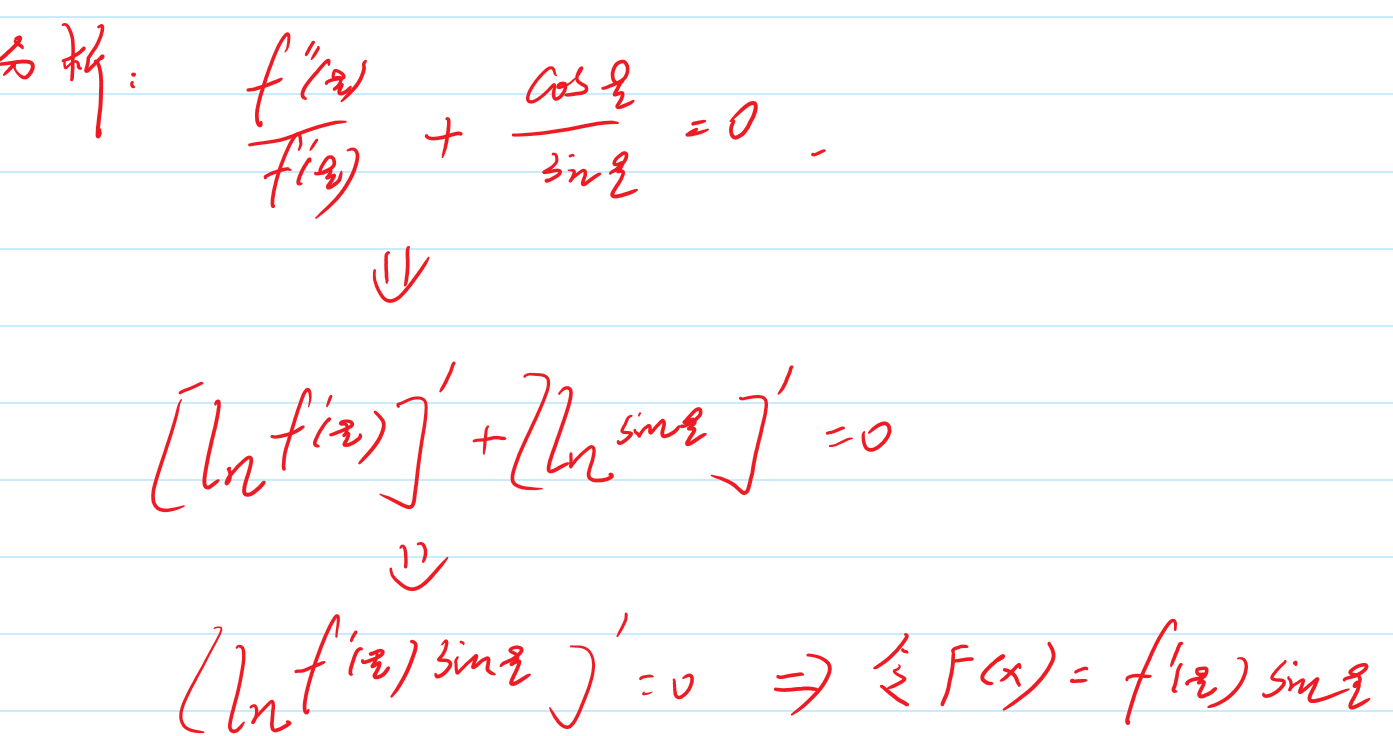 分析: f''(ξ)/f'(ξ) + cosξ/sinξ = 0.
⇓
[ln f'(ξ)]' + [ln sinξ]' = 0
⇓
[ln f'(ξ) sinξ]' = 0 ⇒ 令 F(x) = f'(ξ) sinξ